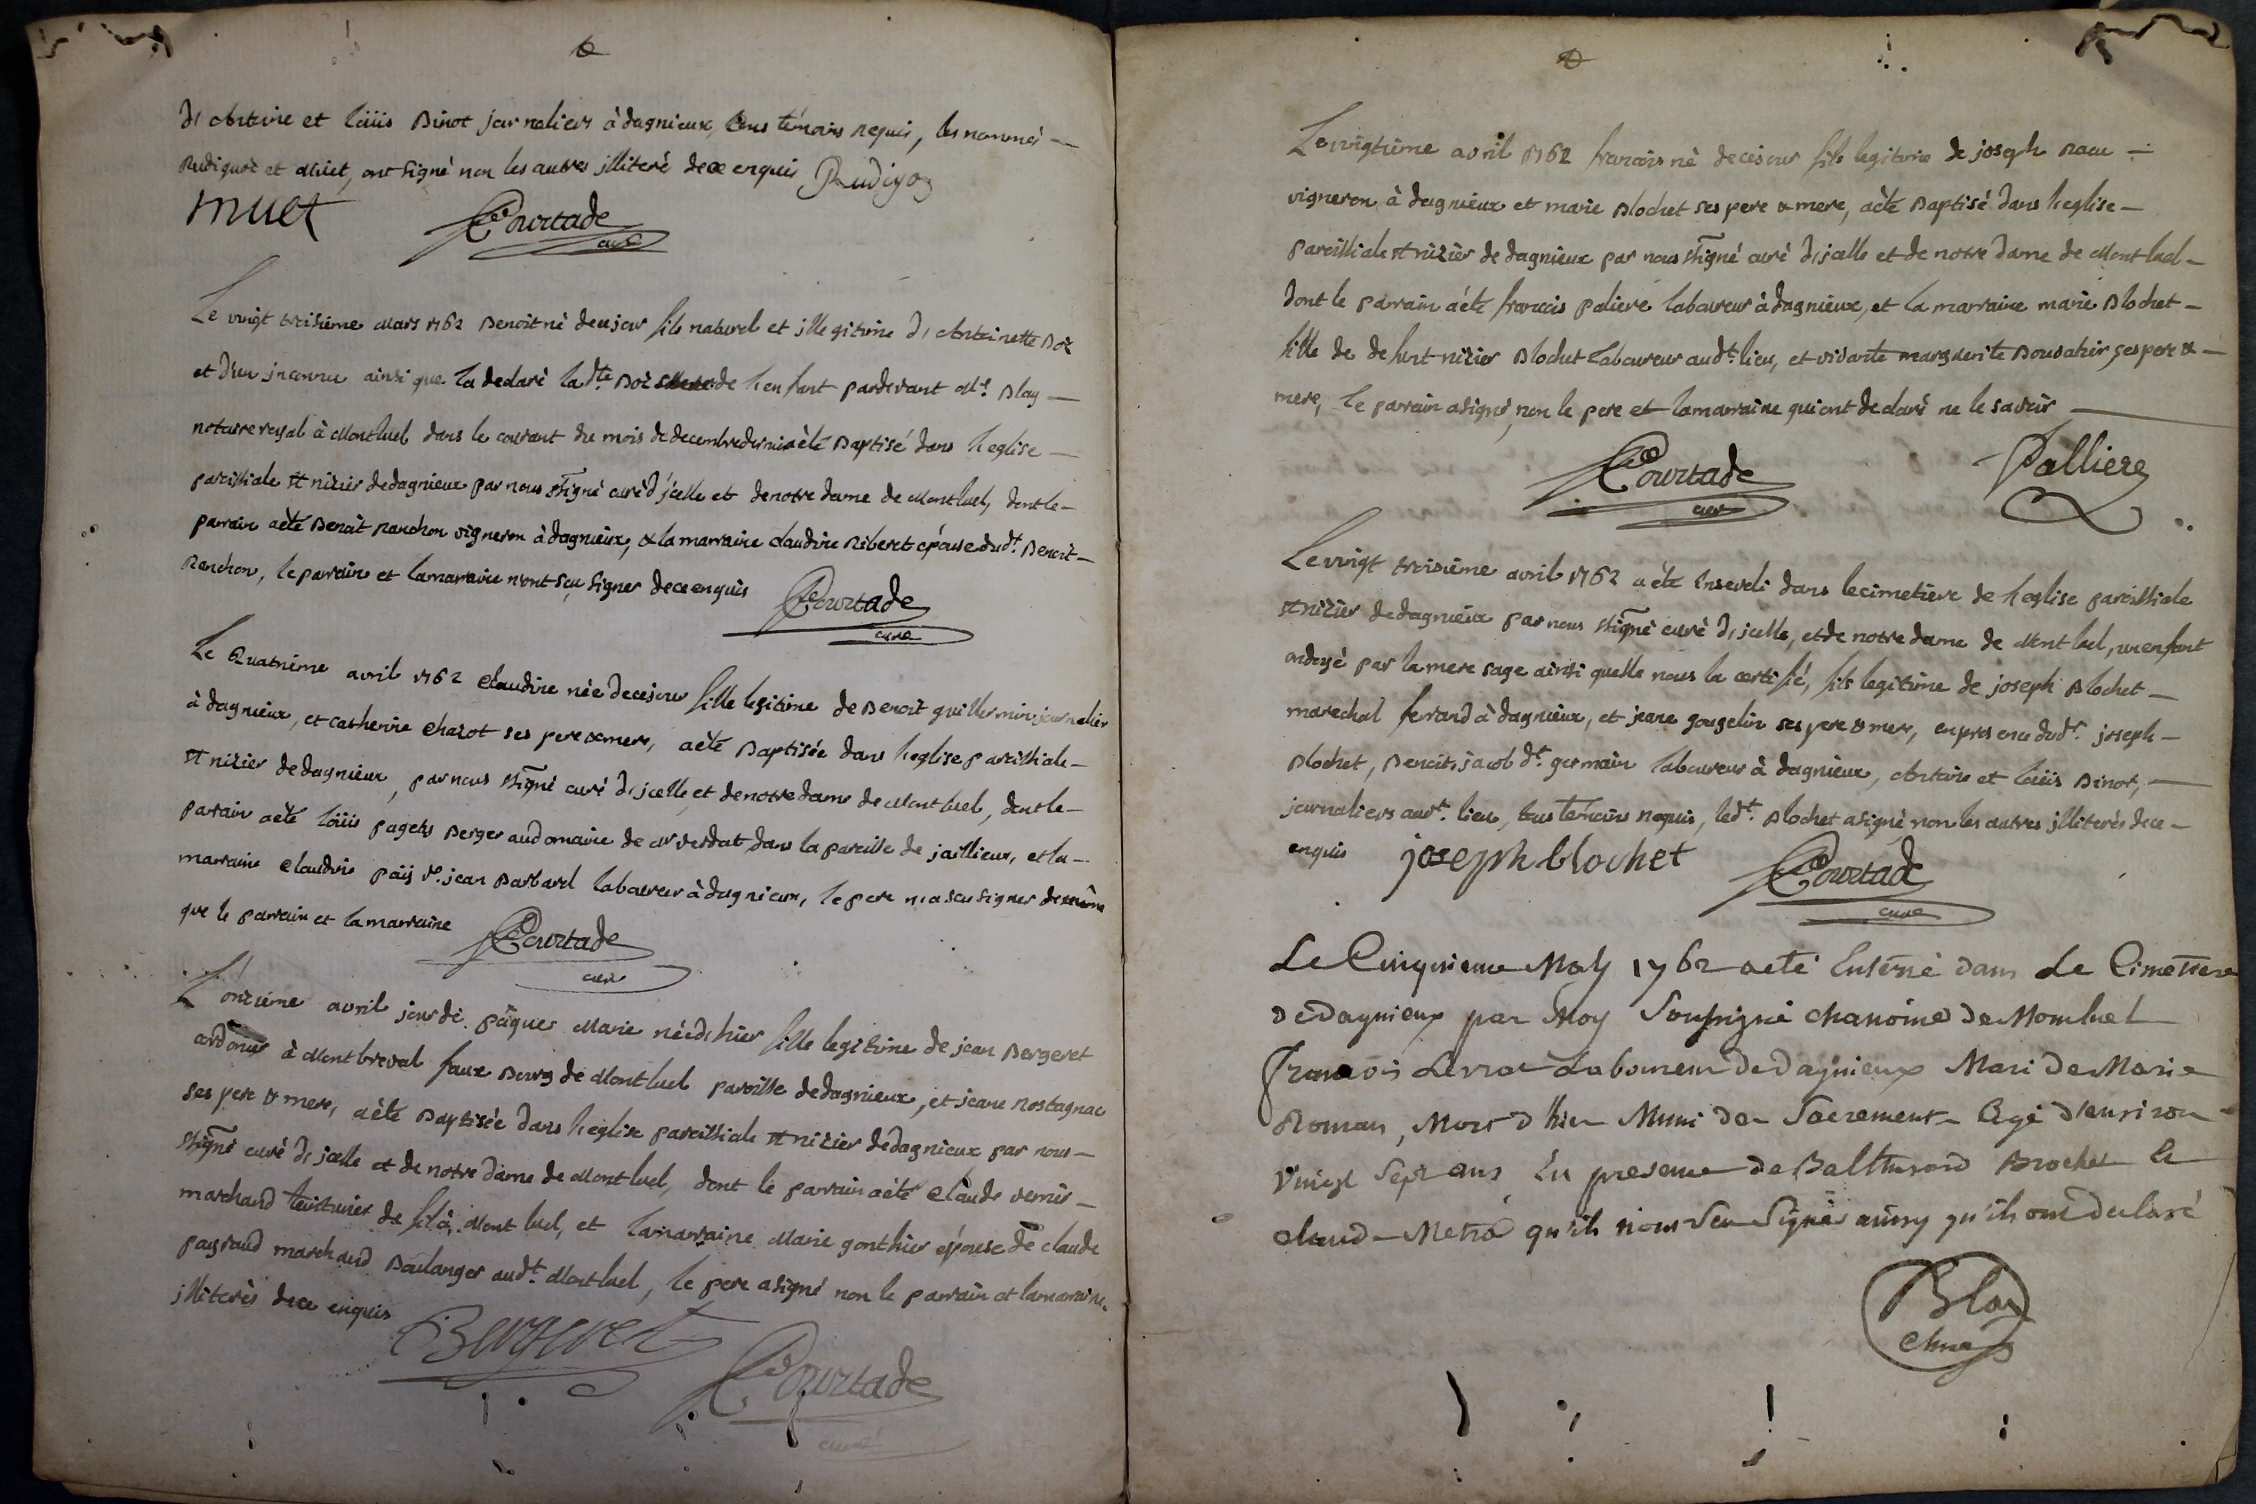 d'Antoine et loüis Binot journaliers à dagnieux, tous témoins requis, les nommés
Rudigoz et Muet, ont signé non les autres jlliteré de ce enquis Rudigoz
muet Courtade curé
Le vingt troisième Mars 1762 Benoit né de ce jour fils naturel et jllegitime d'Antoinette Boz
et d'un jnconnu ainsi que la declaré la dte Boz mere de lenfant pardevant Me Blay
notaire royal à Montluel dans le courant du mois de decembre dernier a été Baptisé dans leglise
paroissiale st nizier de dagnieux par nous ssigné curé d'jcelle et de notre dame de Montluel, dont le
parrain a été Benoit ranchon vigneron à dagnieux, & la marraine claudine Riberet épouse dudt Benoit
Ranchon, le parrain et la marraine n'ont sçu signer de ce enquis Courtade curé
Le Quatrième avril 1762 claudine née de ce jour fille legitime de Benoit guillermin journalier
à dagnieux, et catherine chazot ses pere & mere, a été Baptisée dans leglise paroissiale
st nizier de dagnieux, par nous ssigné curé d'jcelle, et de notre dame de Montluel, dont le
parain a été loüis pagets Berger au domaine de dans la paroisse de jaillieux, et la
marraine claudine païs jean Barbarel laboureur à dagnieux, le pere n'a scu signer de même
que le parrain et la marraine Courtade curé
L'onzième avril jour de pâques Marie née d'hier fille legitime de jean Bergeret
cordonier à Montbreval faux Bourg de Montluel paroisse de dagnieux, et jeane rostagnac
ses pere & mere, a été Baptisée dans leglise paroissiale st nizier de dagnieux par nous
ssigné curé d'jcelle et de notre dame de Montluel, dont le parrain a été claude
marchand de à Montluel, et la marraine Marie gonthier épouse de claude
payraud marchand Boulanger audt Montluel, le pere a signé non le parrain et la marraine
jlliterés de ce enquis Bergeret Courtade curé
Le vingtième avril 1762 francois né de ce jour fils legitime de joseph racu
vigneron à dagnieux et marie Blochet ses pere & mere, a été Baptisé dans leglise
paroissiale st nizier de dagnieux par nous ssigné curé d'jcelle et de notre dame de Montluel
dont le parrain a été francois paliere laboureur à dagnieux, et la marraine marie Blochet
fille de defunt nizier Blochet laboureur audt lieu, et vivante marguerite ses pere &
mere, le parrain a signé, non le pere et la marraine qui ont declaré ne le savoir
Courtade curé Palliere
Le vingt troisième avril 1762 a été Enseveli dans le cimetiere de leglise paroissiale
st nizier de dagnieux par nous ssigné curé d'jcelle, et de notre dame de Montluel, un enfant
ondoyé par la mere sage ainsi quelle nous la certifié, fils legitime de joseph Blochet
marechal ferrand à dagnieux, et jeane gougelin ses pere & mere, en presence dudt joseph
Blochet, Benoit jacob dt germain laboureur à dagnieux, Antoine et loüis Binot,
journaliers audt lieu, tous temoins requis, ledt Blochet a signé non les autres jlliterés de ce
enquis joseph blochet Courtade curé
Le Cinquieme May 1762 a eté Enterré dans Le Cimetiere
de Dagnieux par Moy Soussigné chanoine de Momluel
François Levrat Laboureur de Dagnieux Mari de Marie
Roman, Mort d'hier Muni des Sacrement Agé d'environ
vingt sept ans En presence de Balthazard Brochet &
claude Metra qu'ils n'ont sçu signer ainsy qu'ils ont declaré
Blay
chne